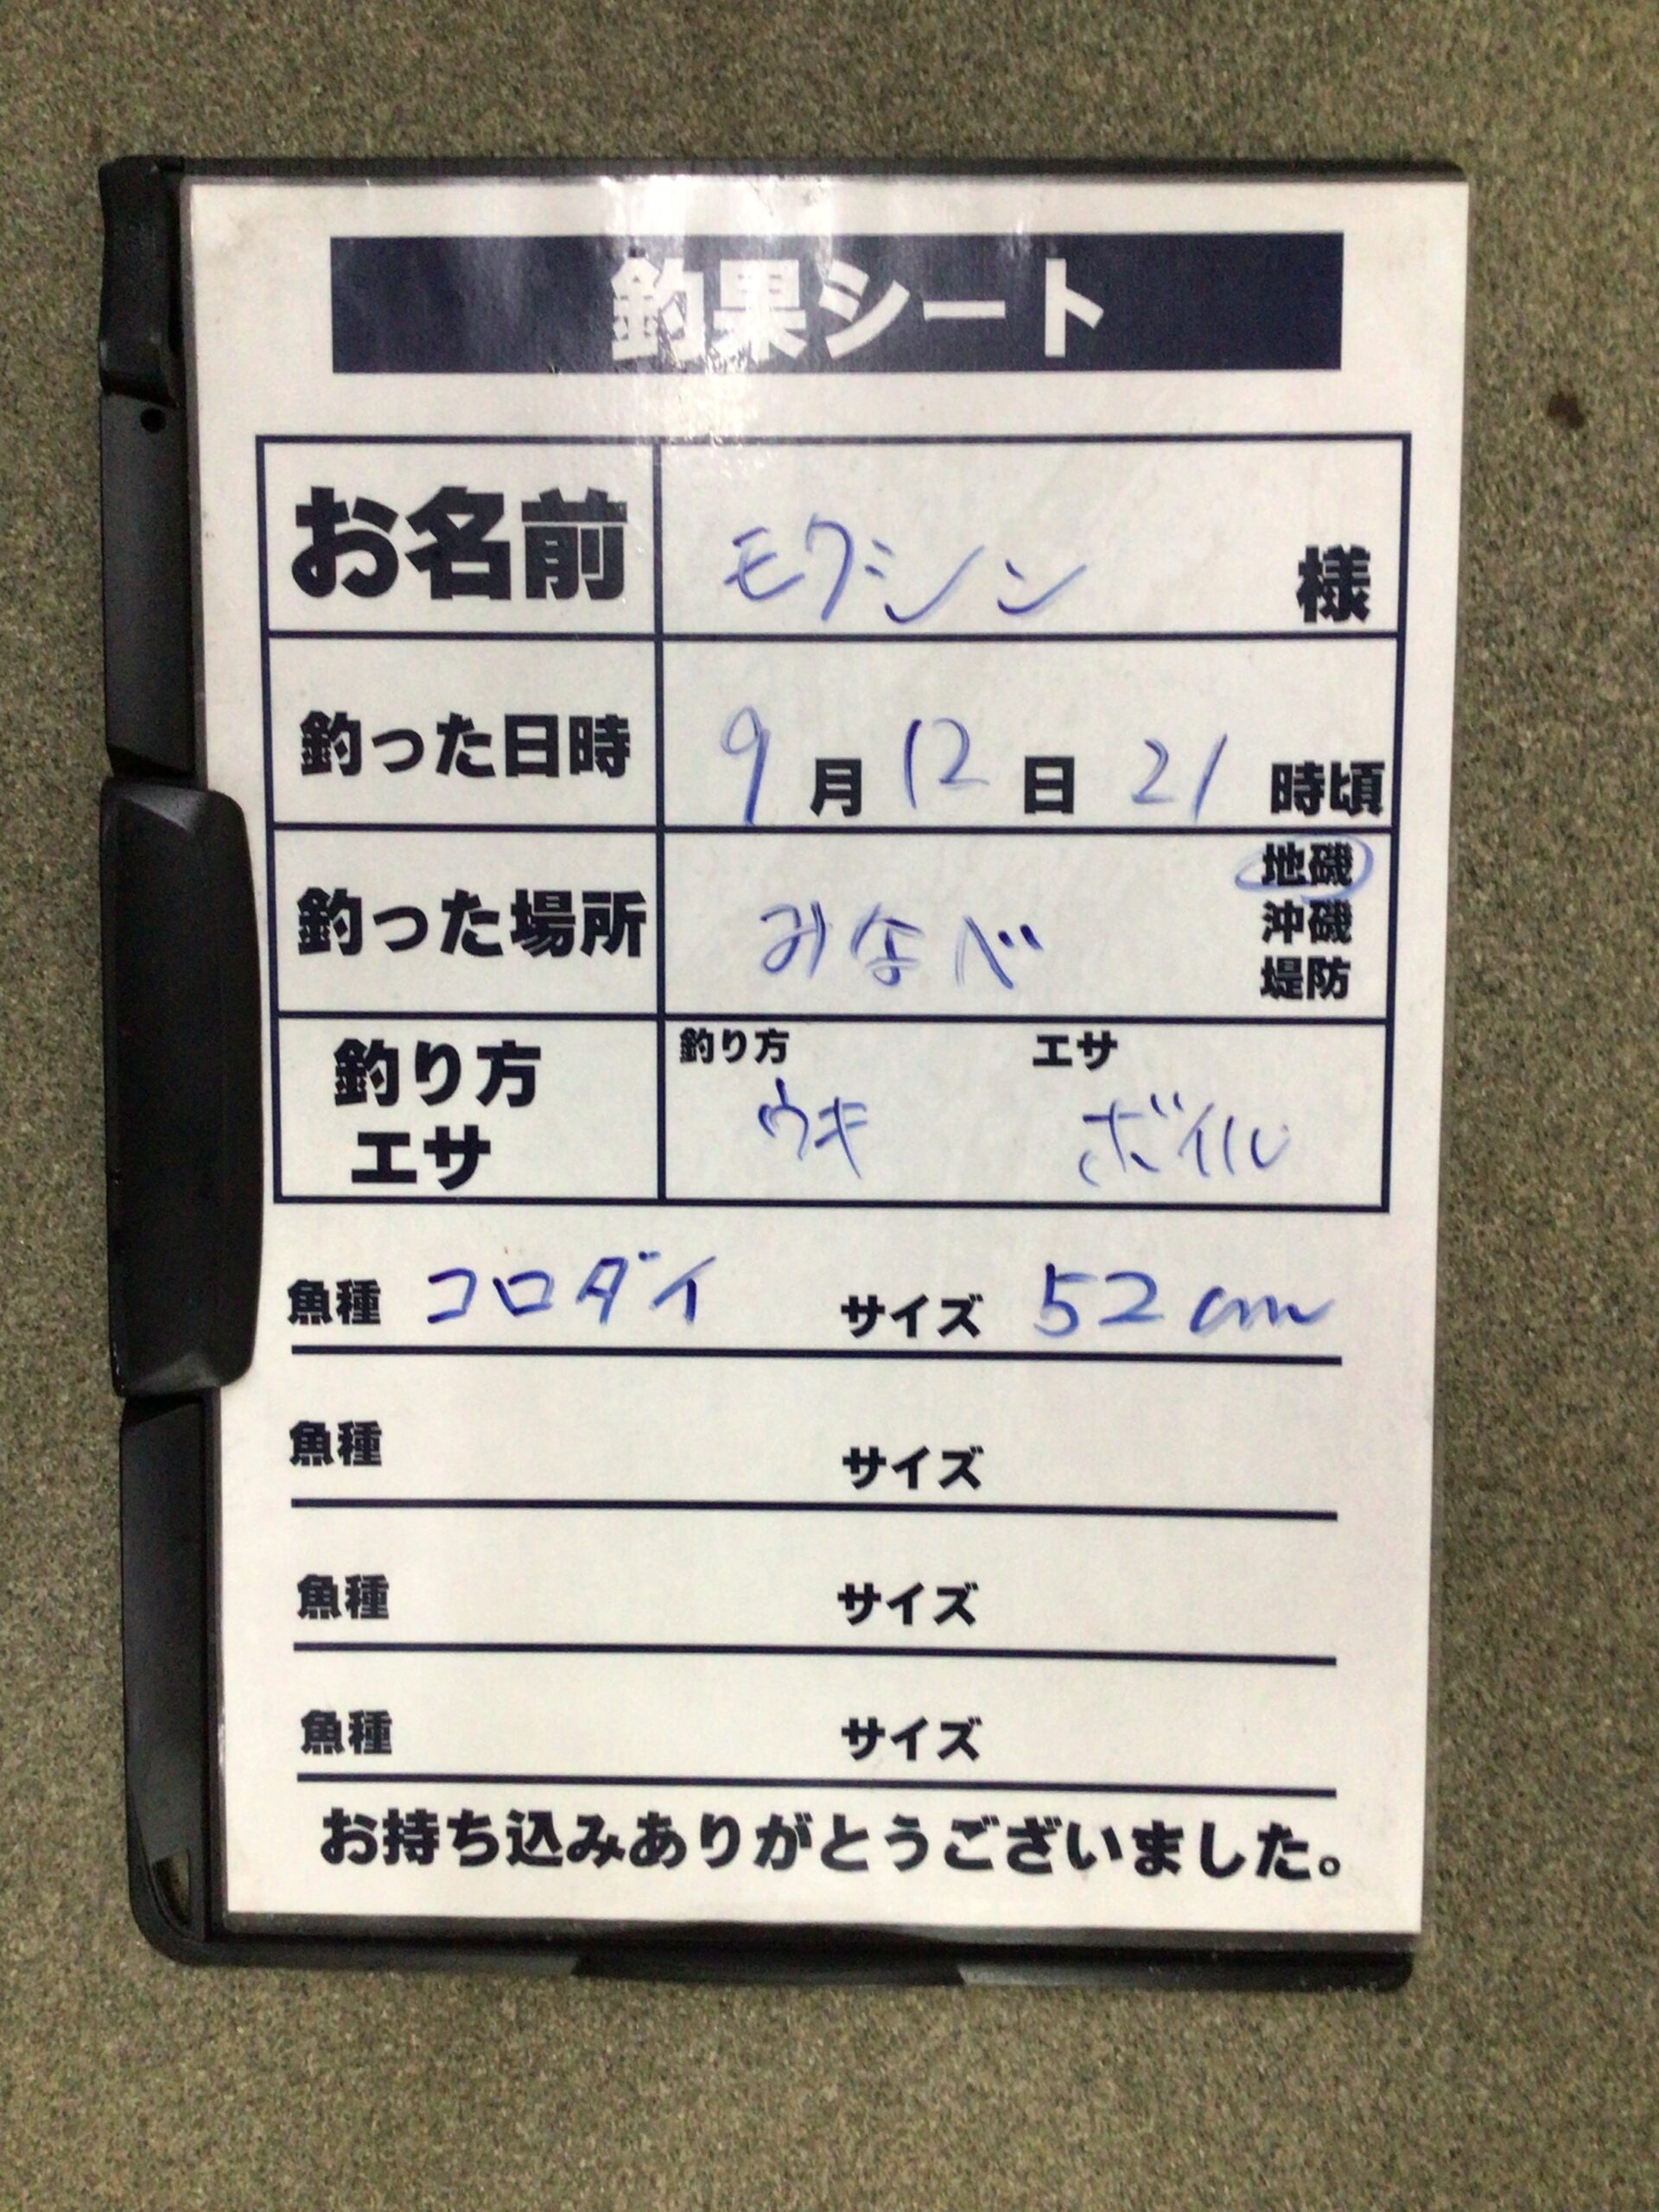 釣果シート
お名前 モクシン 様
釣った日時 9月12日 21時頃
釣った場所 みなべ 地磯
沖磯
堤防
釣り方 エサ
釣り方 ウキ エサ ボイル
魚種 コロダイ サイズ 52cm
魚種 サイズ
魚種 サイズ
魚種 サイズ
お持ち込みありがとうございました。